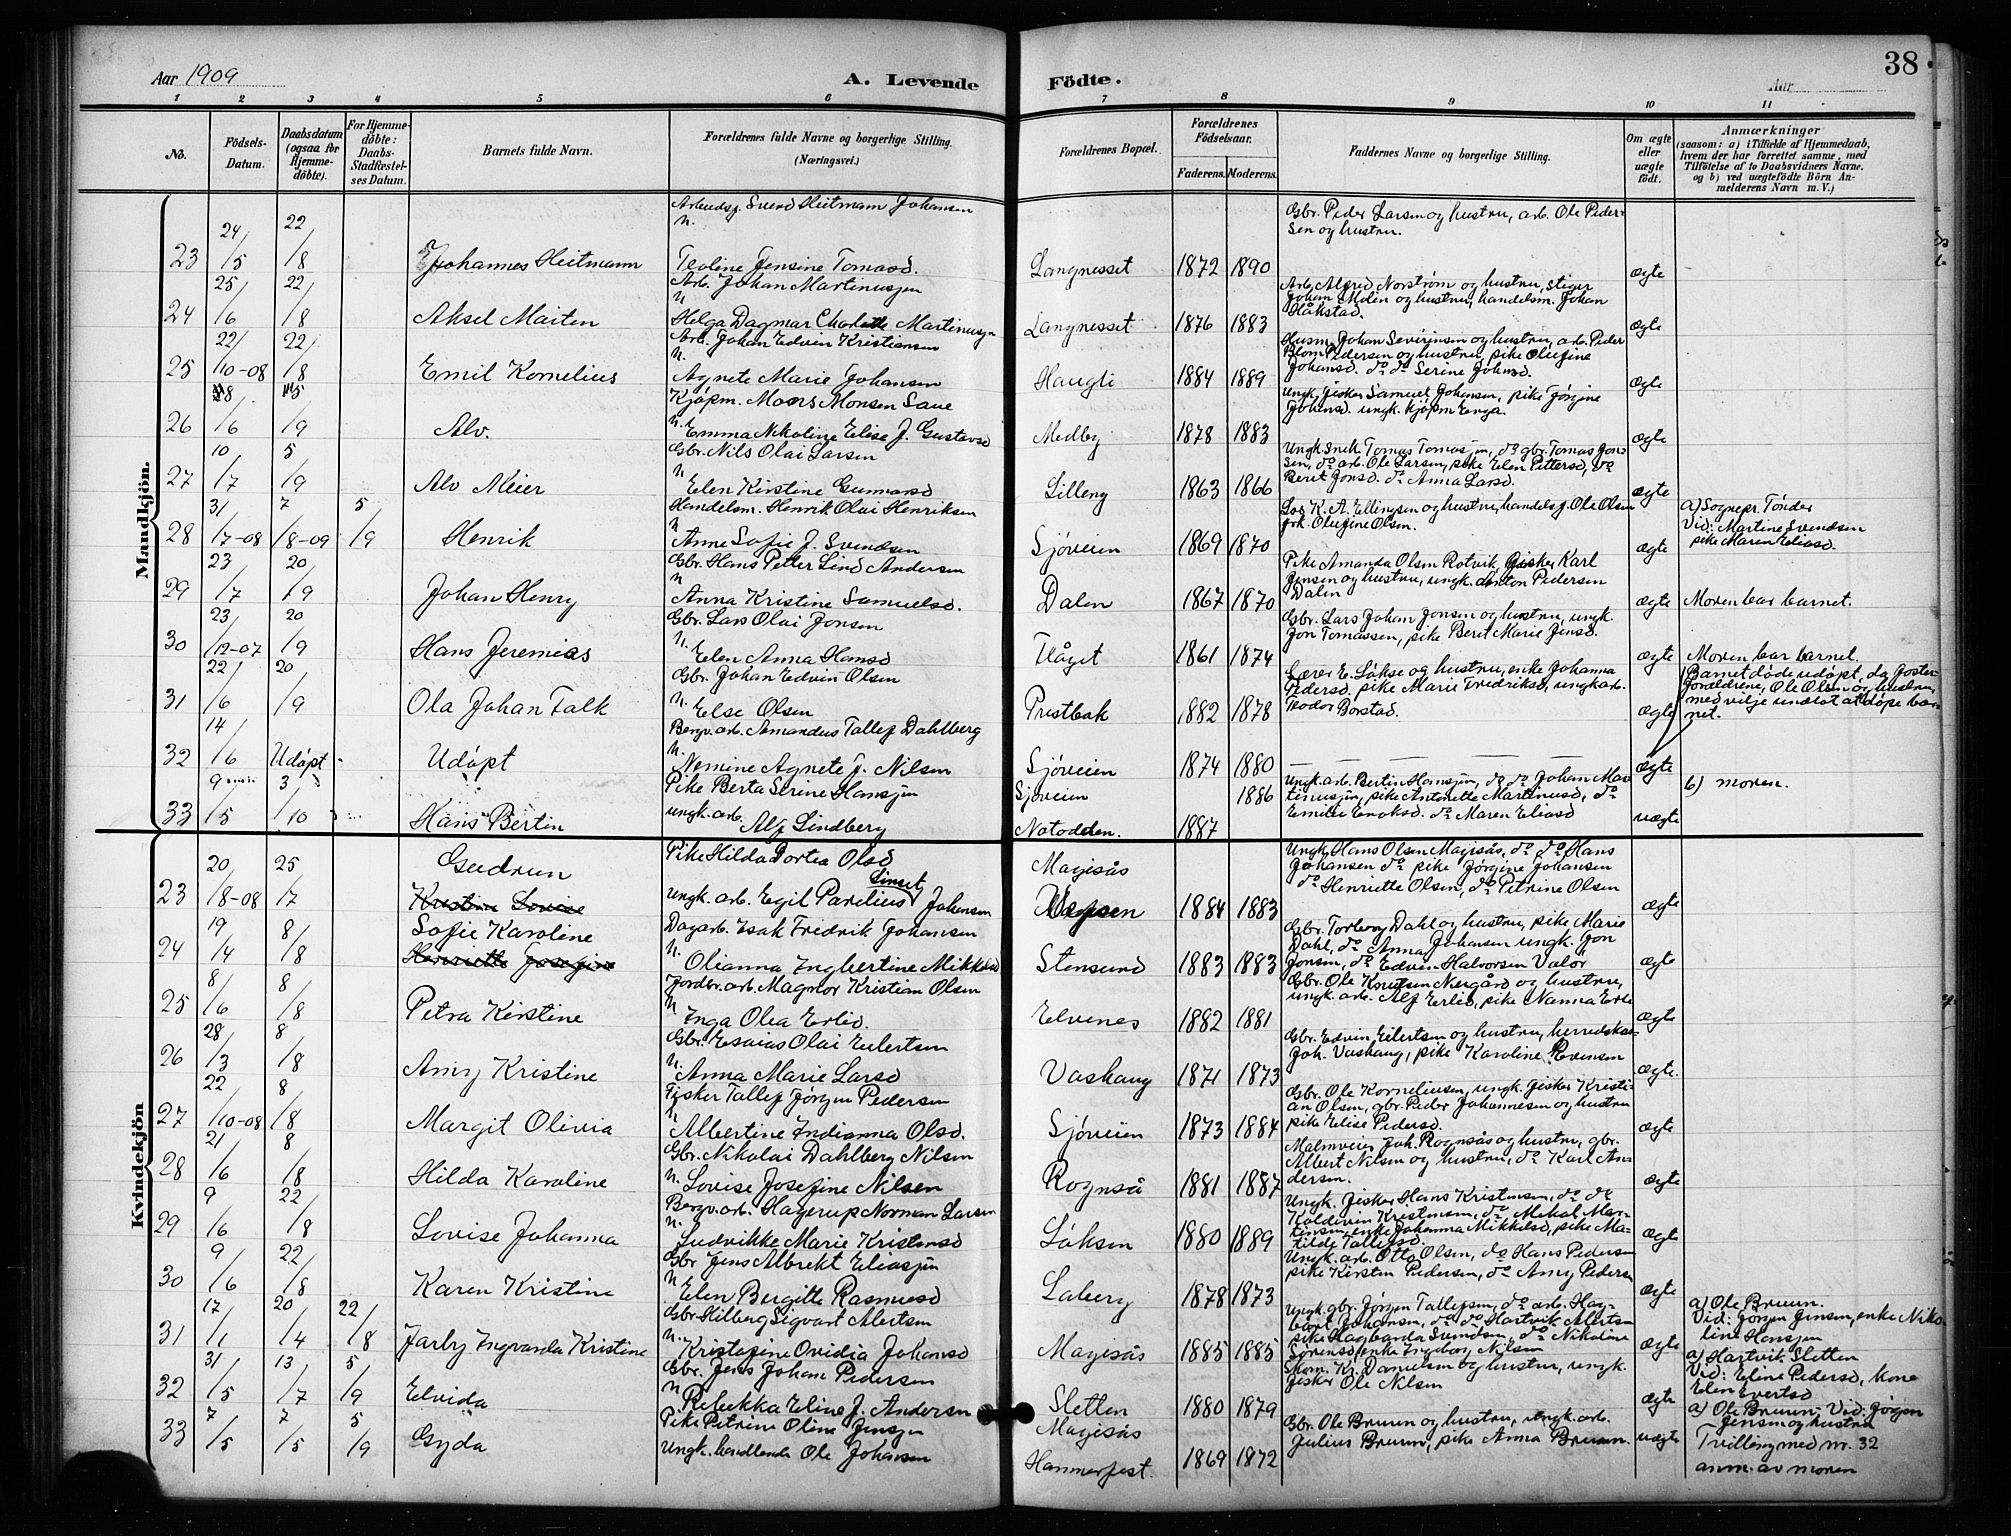 38
Aar 1909
A. Levende
Födte.
Aar
1 2 3 4 5 6 7 8 9 10 11
No.
Födsels-Datum.
Daabsdatum (ogsaa for Hjemme-döbte).
For Hjemme-döbte: Daabs-Stadfæstel-ses Datum.
Barnets fulde Navn.
Forældrenes fulde Navne og borgerlige Stilling. (Næringsvei.)
Forældrenes Bopæl.
Forældrenes Födselsaar.
Faderens. Moderens.
Faddernes Navne og borgerlige Stilling.
Om ægte eller uægte födt.
Anmærkninger
(saasom: a) i Tilfælde af Hjemmedaab, hvem der har forrettet samme, med Tilföielse af to Daabsvidners Navne. og b) ved uægtefödte Börn An-melderens Navn m. V.)
Mandkjön.
23 24/5 22/8 Johannes Heitmann
Arbeidsf. Svend Heitmann Johansen
h. Teoline Jensine Tomasd.
Langnesset 1872 1890
Gbr. Peder Larsen og hustru, arb. Ole Peder-
sen og hustru.
ægte
24 25/6 22/8 Aksel Marten
Arb. Johan Martinussen
h. Helga Dagmar Charlotte Martinussen
Langnesset 1876 1883
Arb. Alfred Norstrøm og hustru, stiger
Johan Moen og hustru, handelsm. Johan
Håkstad.
ægte
25 22/10-08 22/8 Emil Kornelius
Arb. Johan Edvin Kristiansen
h. Agnete Marie Johansen
Haugli 1884 1889
Husm. Johan Severinsen og hustru, arb. Peder
Blom Pedersen og hustru, pike Olufine
Johansd. do do Serine Johnsd.
ægte
26 28/6 5/9 Alv.
Kjøpm. Mons Monsen Saue
h. Emma Nikoline Elise J. Gustavsd
Medby 1878 1883
Ungk. fisker Samuel Johansen, pike Jørgine
Johansd. ungk. kjøpm Enga.
ægte
27 10/7 5/9 Alv Meier
Gbr. Nils Olai Larsen
h. Elen Kirstine Gunnarsd
Lilleng 1863 1866
Ungk. Snek. Tomas Tomassen, do gbr. Tomas Jon-
sen, do arb. Ole Larsen, pike Elen Pettersd, do
Berit Jonsd. do Anna Larsd.
ægte
28 31/7-08 7/8-09 5/9 Henrik
Handelsm. Henrik Olai Henriksen
h. Anne Sofie J. Svendsen
Sjøveien 1869 1870
Los K. A. Ellingsen og hustru, handelsf. Ole Olsen
frk. Olufine Olsen.
ægte
a) Sognepr. Tønder
Vid: Martine Svendsen
pike Maren Eliasd.
29 23/7 20/9 Johan Henry
Gbr. Hans Petter Lind Andersen
h. Anna Kristine Samuelsd.
Dalen 1867 1870
Pike Amanda Olsen Rotvik, fisker Karl
Jensen og hustru, ungk. Anton Pedersen
Dalen
ægte
Moren bar barnet.
30 23/12-07 20/9 Hans Jeremias
Gbr. Lars Olai Jonsen
h. Elen Anna Hansd
Flåget 1861 1874
Gbr. Lars Johan Jonsen og hustru, ungk.
Jon Tomassen, pike Berit Marie Jensd.
ægte
Moren bar barnet.
31 22/6 20/9 Ola Johan Falk
Gbr. Johan Edvin Olsen
h. Else Olsen
Prestbak 1882 1878
Lærer E. Løkse og hustru, enke Johanna
Pedersd. pike Marie Fredriksd, ungk arb.
Teodor Borstad.
ægte
Barnet døde udøpt, da foster-
forældrene, Ole Olsen og hustru,
med vilje undlot at døpe bar-
net.
32 14/6 Udøpt Udøpt
Bergv. arb. Amandus Tallef Dahlberg
h. Nemine Agnete J. Nilsen
Sjøveien 1874 1880
ægte
33 9/5 3/10 Hans Bertin
Pike Berta Serine Hansen
ungk. arb. Alf Lindberg
Sjøveien 1886
Notodden. 1887
Ungk. arb. Bertin Hansen, do do Johan Mar-
tinussen, pike Antonette Martinusd, do
Emilie Enoksd. do Maren Eliasd
uægte
b) moren.
Kvindekjön
23 20/8-08 25/7 Gudrun
Kristine Lovise
Pike Hilda Dortea Olsd
ungk. arb. Egil Parelius Linset Johansen
Magisås
1884 1883
Ungk. Hans Olsen Magisås, do do Hans
Johansen do pike Jørgine Johansen
do Henriette Olsen, do Petrine Olsen
ægte
24 19/4 8/8 Sofie Karoline
Henriette Josefine
Dagarb. Esak Fredrik Johansen
h. Olianna Ingbertine Mikkelsd
Stensund 1883 1883
Gbr. Torberg Dahl og hustru, pike Marie
Dahl, do Anna Johansen ungk. Jon
Jonsen, do Edvin Halvorsen Valør
ægte
25 8/6 8/8 Petra Kirstine
Jorder. arb. Magnor Kristian Olsen
h. Inga Olea Erlid.
Elvenes 1882 1881
Gbr. Ole Knutsen Nergård og hustru,
ungk. arb. Alf Erlid, pike Nanna Erli
ægte
26 28/3 8/8 Amy Kristine
Gbr. Esaias Olai Eilertsen
h. Anna Marie Larsd
Vashaug 1871 1873
Gbr. Edvin Eilertsen og hustru, herredskas-
Joh. Vashaug, pike Karoline Evensen
ægte.
27 22/10-08 8/8 Margit Olivia
Fisker Tallef Jørgen Pedersen
h. Albertine Indianna Olsd.
Sjøveien 1873 1884
Gbr. Ole Korneliusen, ungk. fisker Kristi-
an Olsen, gbr. Peder Johannesen og hustru
pike Elise Pedersd.
ægte
28 21/6 8/8 Hilda Karoline
Gbr. Nikolai Dahlberg Nilsen
h. Lovise Josefine Nilsen
Rognså 1881 1887
Malmveier Joh. Rognsås og hustru, gbr.
Albert Nilsen og hustru, do Karl An-
dersen.
ægte
29 9/6 22/8 Lovise Johanna
Bergv. arb. Hagerup Norman Larsen
h. Ludvikke Marie Kristensd
Løksen 1880 1889
Ungk. fisker Hans Kristensen, do do
Koldevin Kristensen, do Mikal Mar-
tinsen, enke Johanna Mikkelsd, pike Ma-
tilde Tallefsd.
ægte
30 9/6 22/8 Karen Kristine
Gbr Jens Albrekt Eliassen
h. Elen Bergitte Rasmusd
Laberg 1878 1873
Ungk. arb. Otto Olsen, do Hans Pedersen
pike Kirsten Pedersen, do Amy Pedersen
ægte
31 17/1 20/4 22/8 Jarby Ingvarda Kristine
Gbr Hilberg Sigvart Albertsen
h. Kristofine Ovidia Johansd
Magisås 1885 1885
Ungk. gbr. Jørgen Tallefsen, do arb. Hag-
bart Johansen, do do Hartvik Albertsen
pike Hagbarda Svendsen, do Nikoline
Sørensd enke Ingeborg Nilsen
ægte
a) Ole Bruun.
Vid: Jørgen Jensen, enke Niko-
line Hansen
32 31/5 13/7 5/9 Elvida
Gbr. Jens Johan Pedersen
h. Rebekka Eline J. Andersen
Sletten 1880 1879
Skom. Kr. Danielsen og hustru, ungk.
fisker Ole Nilsen
ægte
a) Hartvik Sletten
Vid: Eline Pedersd, kone
Elen Evertsd
33 7/5 7/5 5/9 Gyda
Pike Petrine Oline Jensen
Ungk. handlende Ole Johansen
Magisås
Hammerfest. 1869 1872
Gbr. Ole Bruun og hustru, ungk. arb.
Julius Bruun, pike Anna Bruun.
uægte
a) Ole Bruun, Vid: Jørgen
Jensen og hustru
Tvilling med nr. 32
anm. av moren